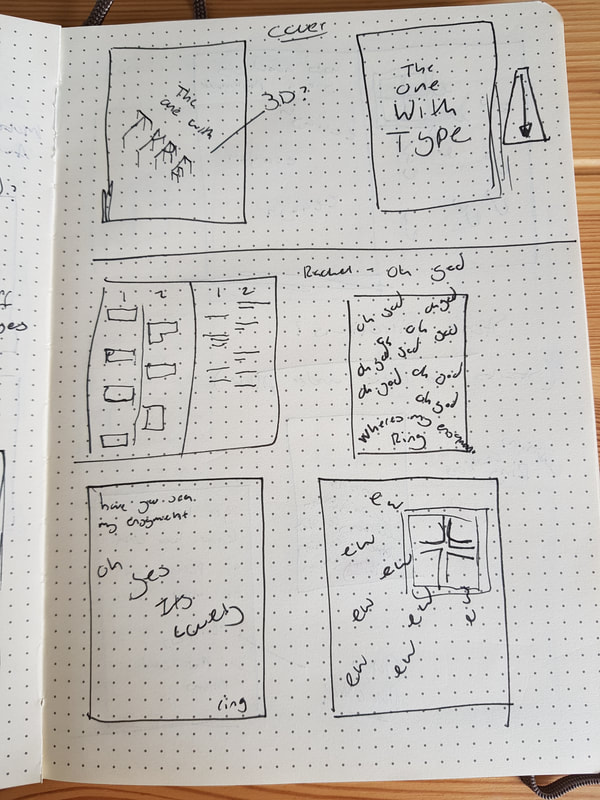 cover
The
one with
3D?
The
One
With
Type
Rachel - oh god
1 2 1 2
oh god oh god
oh oh god
oh god god
oh god oh god
oh god
Wheres my
Ring
have you seen
my
oh
yes
Its
lovely
ring
ew
ew
ew
ew
ew
ew
ew
ew